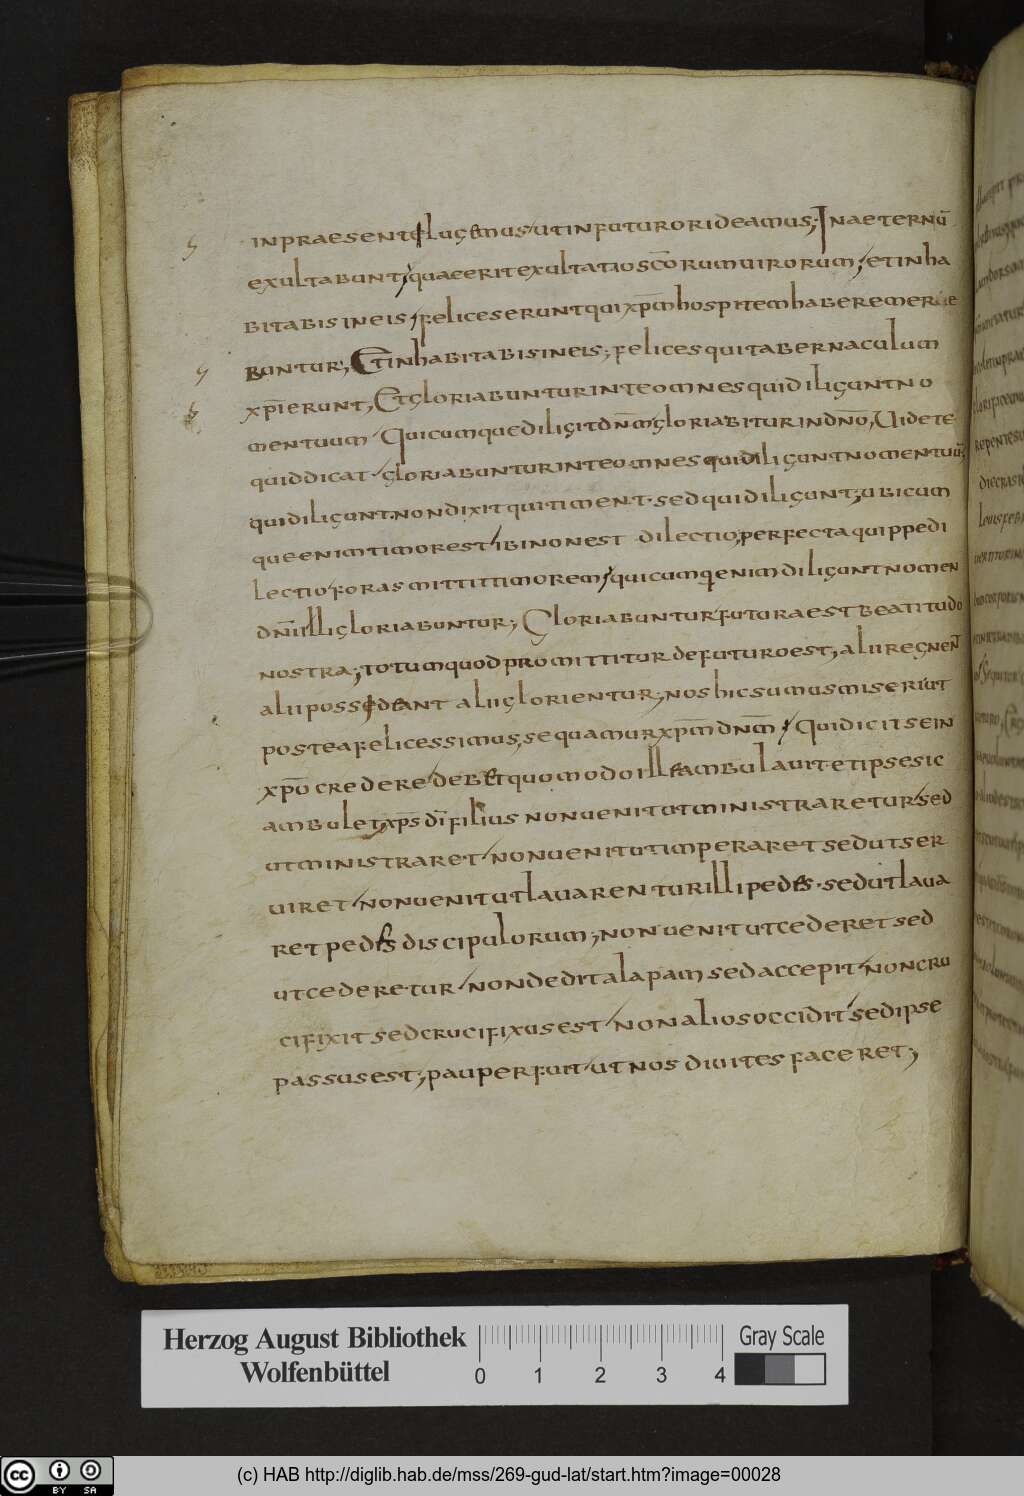 in praesente lugemus ut in futuro rideamus; In aeternū
exultabunt; quae erit exultatio sc̄orum uirorum; et inha
bitabis in eis; felices erunt qui xp̄m hospitem habere merue
buntur; Et inhabitabis in eis; felices qui tabernaculum
xp̄i erunt, Et gloriabuntur in te omnes qui diligunt no
men tuum Quicumque diligit dn̄m gloriabitur in dn̄o, Uidete
quid dicat gloriabuntur in te omnes qui diligunt nomen tuū;
qui diligunt. non dixit qui timent. sed qui diligunt; ubicum
que enim timor est ibi non est dilectio; perfecta quippe di
lectio foras mittit timorem; quicumque enim diligunt nomen
dn̄i illi gloriabuntur; Gloriabuntur futura est beatitudo
nostra; totum quod promittitur de futuro est, alii regnent
alii possedeant alii glorientur; nos hic sumus miseri ut
postea felicessimus, sequamur xp̄m dn̄m; Qui dicit se in
xp̄o credere debet quomodo ille ambulauit et ipse sic
ambulet, xp̄s dī filius non uenit ut ministraretur sed
ut ministraret non uenit ut imperaret sed ut ser
uiret non uenit ut lauarentur illi pedes. sed ut laua
ret pedes discipulorum; non uenit ut cederet sed
ut cederetur non dedit alapam sed accepit non cru
cifixit sed crucifixus est non alios occidit sed ipse
passus est; pauper fuit ut nos diuites faceret;
Herzog August Bibliothek
Wolfenbüttel
0 1 2 3 4
Gray Scale
cc BY SA
(c) HAB http://diglib.hab.de/mss/269-gud-lat/start.htm?image=00028